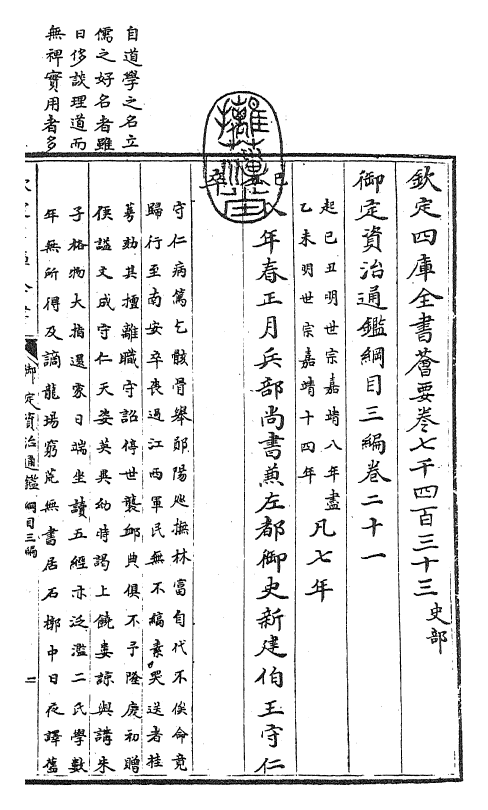 欽定四庫全書薈要卷七千四百三十三史部
御定資治通鑑綱目三編卷二十一
起己丑明世宗嘉靖八年盡
乙未明世宗嘉靖十四年
凡七年
八年春正月兵部尚書兼左都御史新建伯王守仁
卒
守仁病篤乞骸骨舉鄖陽巡撫林富自代不俟命竟
歸行至南安卒喪過江西軍民無不縞素哭送者桂
萼劾其擅離職守詔停世襲卹典俱不予隆慶初贈
侯諡文成守仁天姿英異幼時謁上饒婁諒與講朱
子格物大指還家日端坐讀五經亦泛濫二氏學數
年無所得及謫龍場窮荒無書居石槨中日夜譯舊
自道學之名立
儒之好名者雖
日侈談理道而
無裨實用者多
御定資治通鑑綱目三編
二